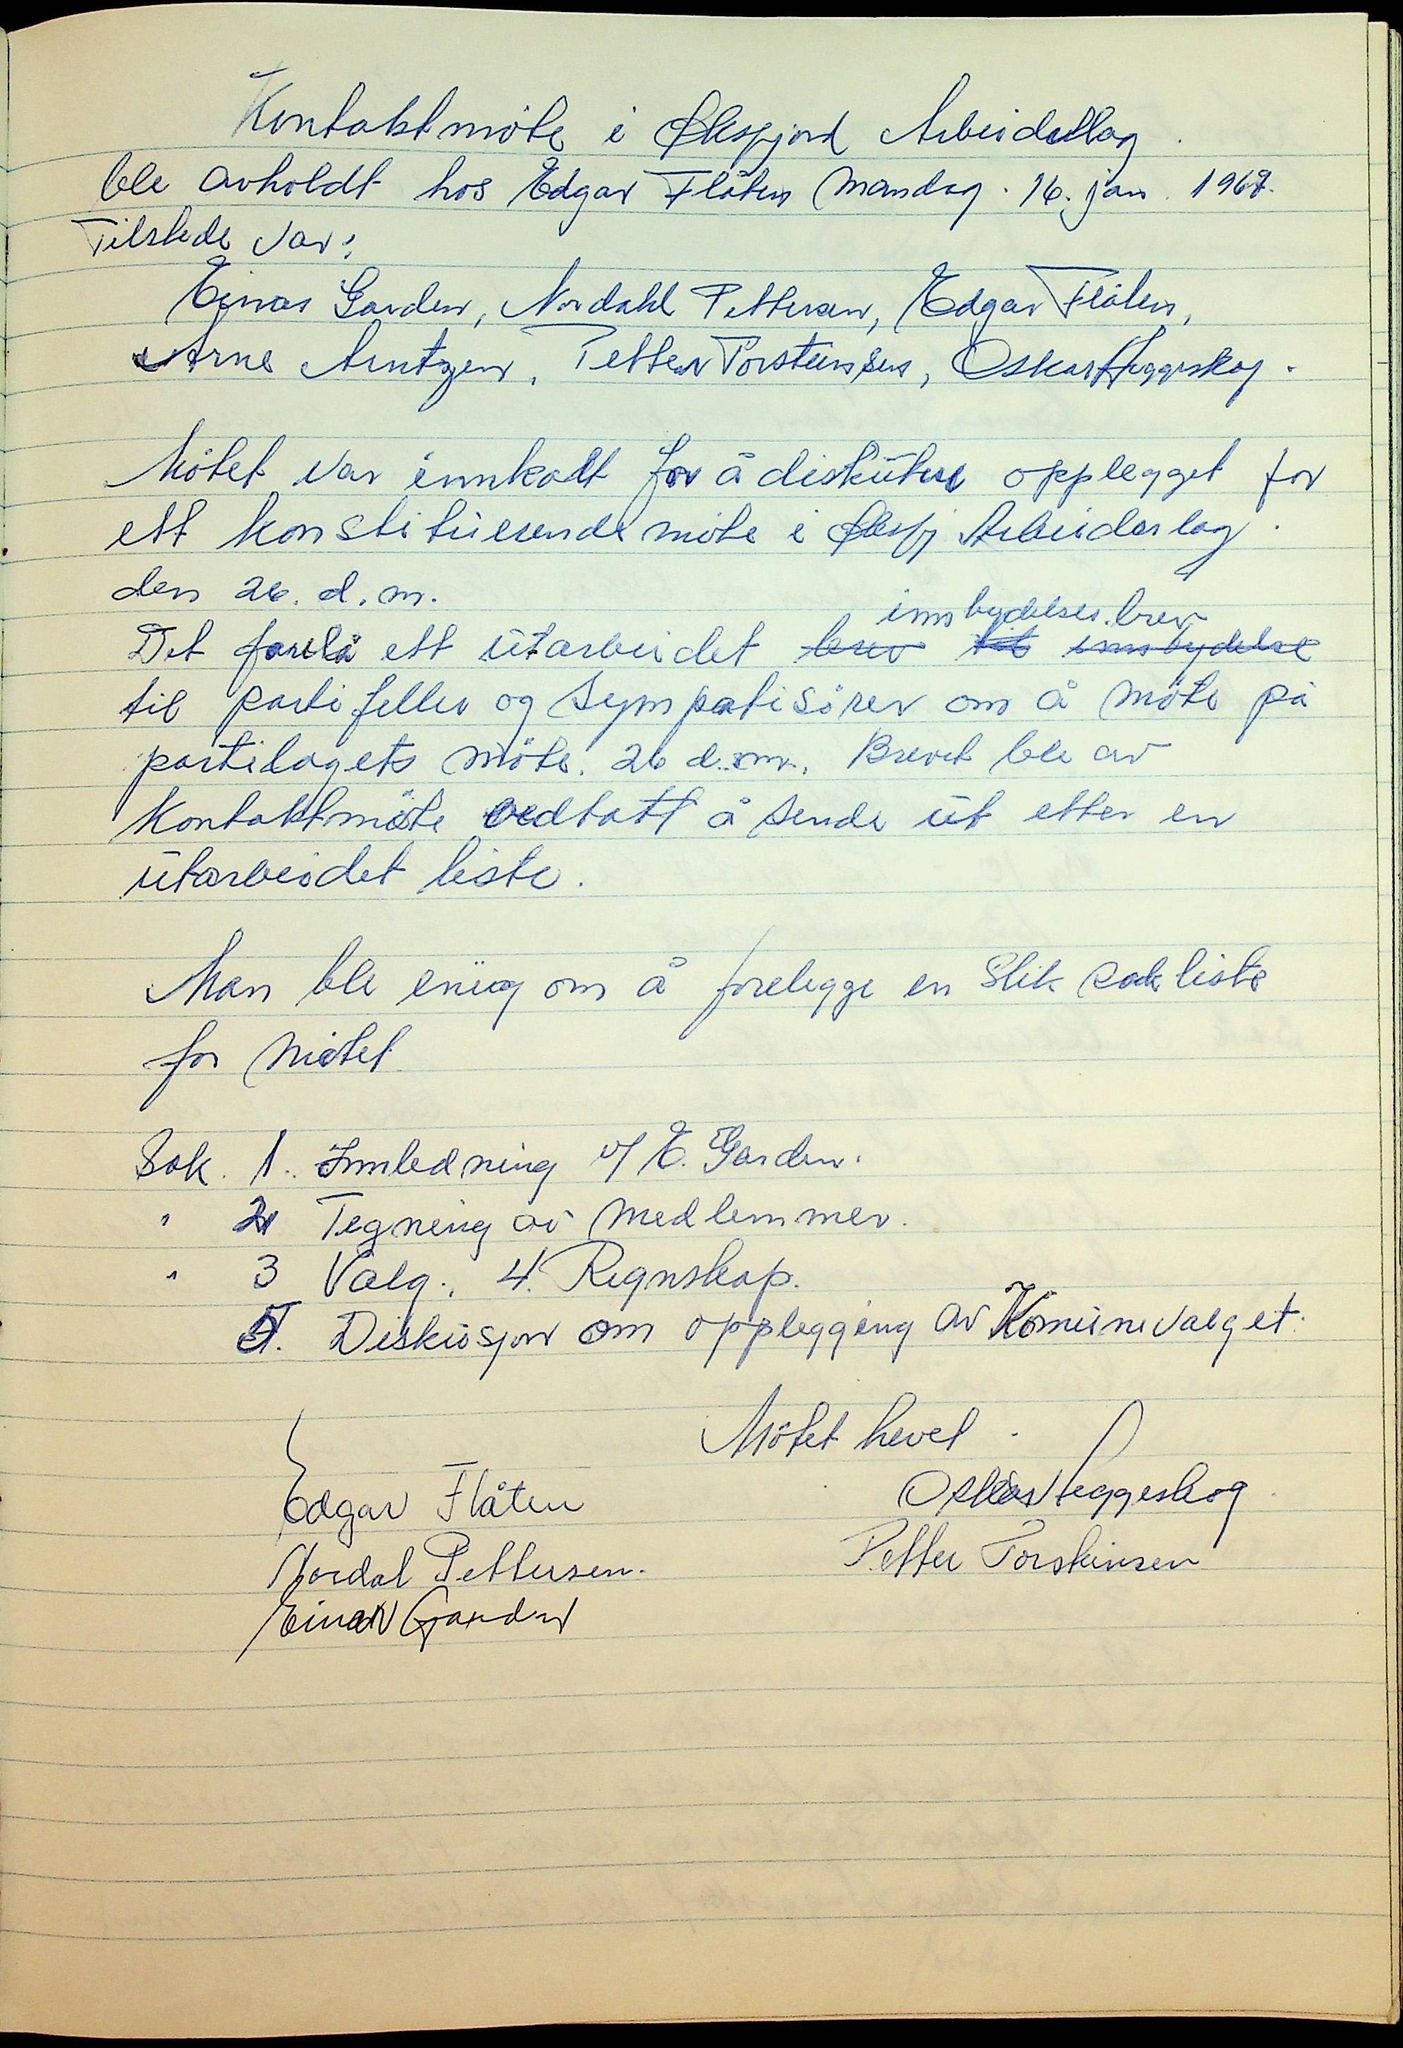 Kontaktmöte i Øksfjord Arbeidellag.
ble avholdt hos Edgar Flåten mandag. 16. jan. 1967.
Tilstede var:
Einar Garden, Nordahl Pettersen, Edgar Flåten,
Arne Arntzen, Petter Torsteinsen, Oskar Heggeskog.
Mötet var innkalt for å diskutere opplegget for
ett konstituerende möte i Øksfj Arbeiderlag.
den 26. d.m.
innbydelses.brev
Det forelå ett utarbeidet brev til innbydelse
til partifeller og Sympatisörer om å möte på
partilagets möte. 26 d.m. Brevet ble av
Kontaktmöte vedtatt å sende ut etter en
utarbeidet liste.
Man ble enig om å forelegge en Slik sakliste
for Mötet
Sak. 1. Innledning v/ E. Garden.
" 2 Tegning av medlemmer.
" 3 Valg. 4. Regnskap.
5. Diskusjon om opplegging av Komunevalget.
Mötet hevet.
Edgar Flåten Oskar Heggeskog
Nordal Pettersen. Petter Torsteinsen
Einar Garden